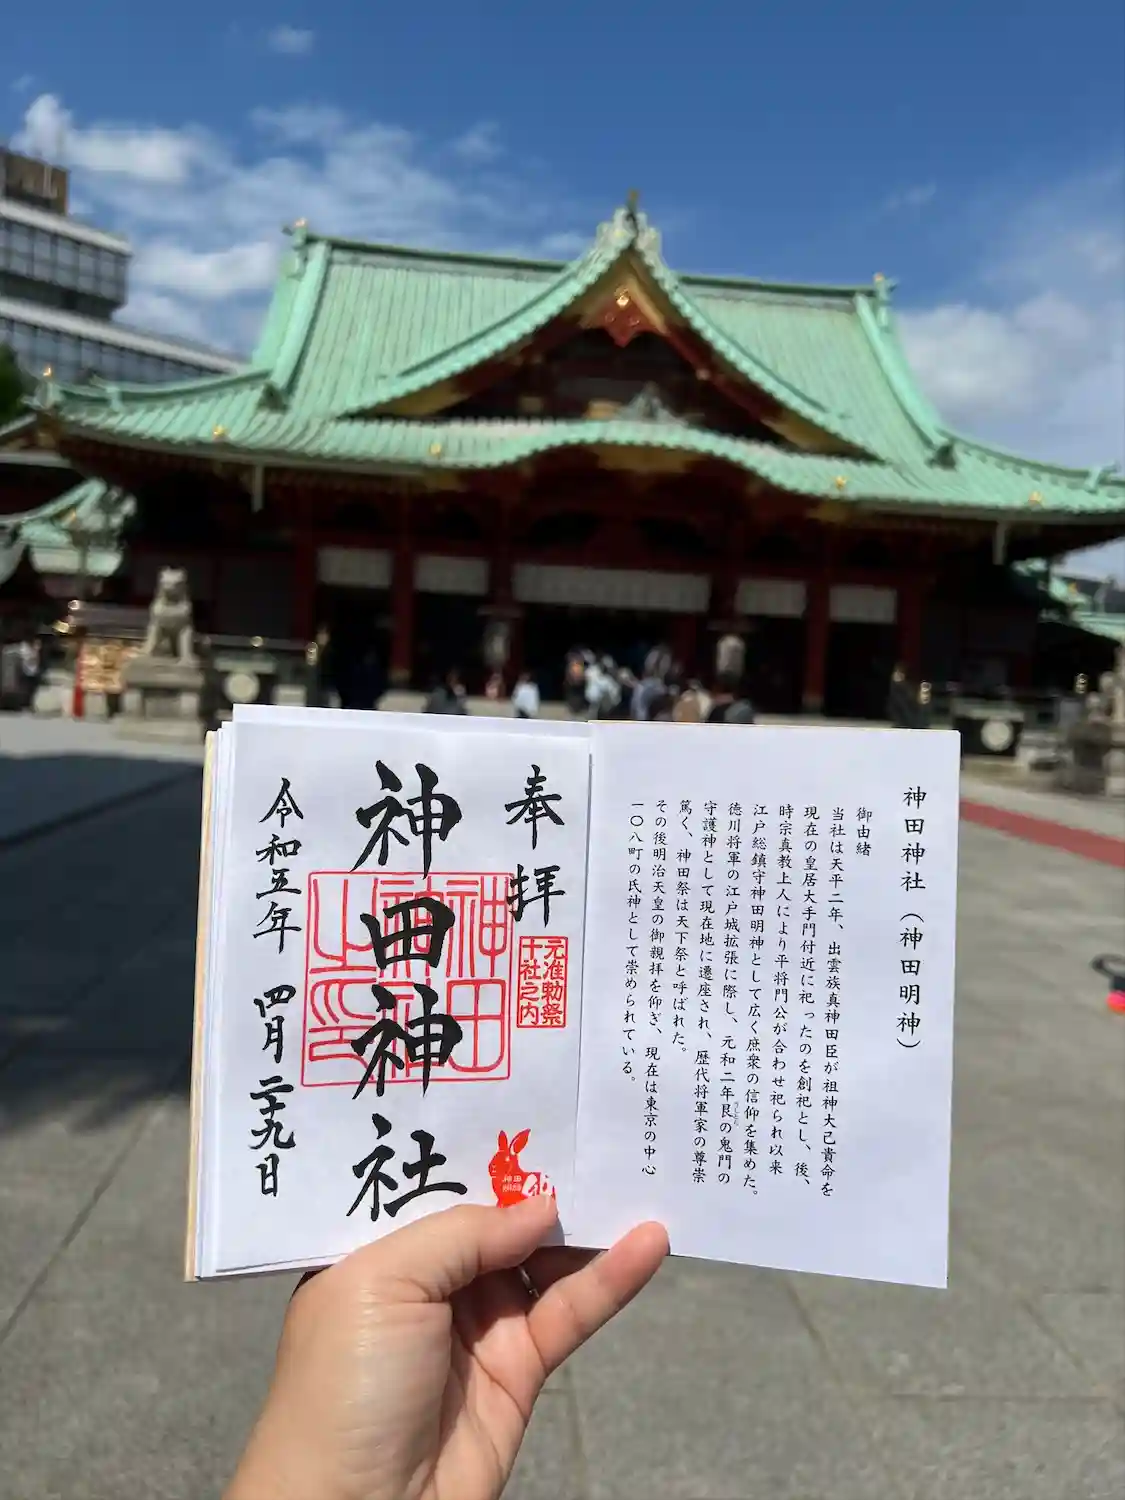 神田神社（神田明神）
御由緒
当社は天平二年、出雲族真神田臣が祖神大己貴命を
現在の皇居大手門付近に祀ったのを創祀とし、後、
時宗真教上人により平将門公が合わせ祀られ以来
江戸総鎮守神田明神として広く庶衆の信仰を集めた。
徳川将軍の江戸城拡張に際し、元和二年艮の鬼門の
守護神として現在地に遷座され、歴代将軍家の尊崇
篤く、神田祭は天下祭と呼ばれた。
その後明治天皇の御親拝を仰ぎ、現在は東京の中心
一〇八町の氏神として崇められている。
奉拝
元准勅祭
十社之内
神田神社
神田
神社
之印
神田
明神
令和五年 四月二十九日